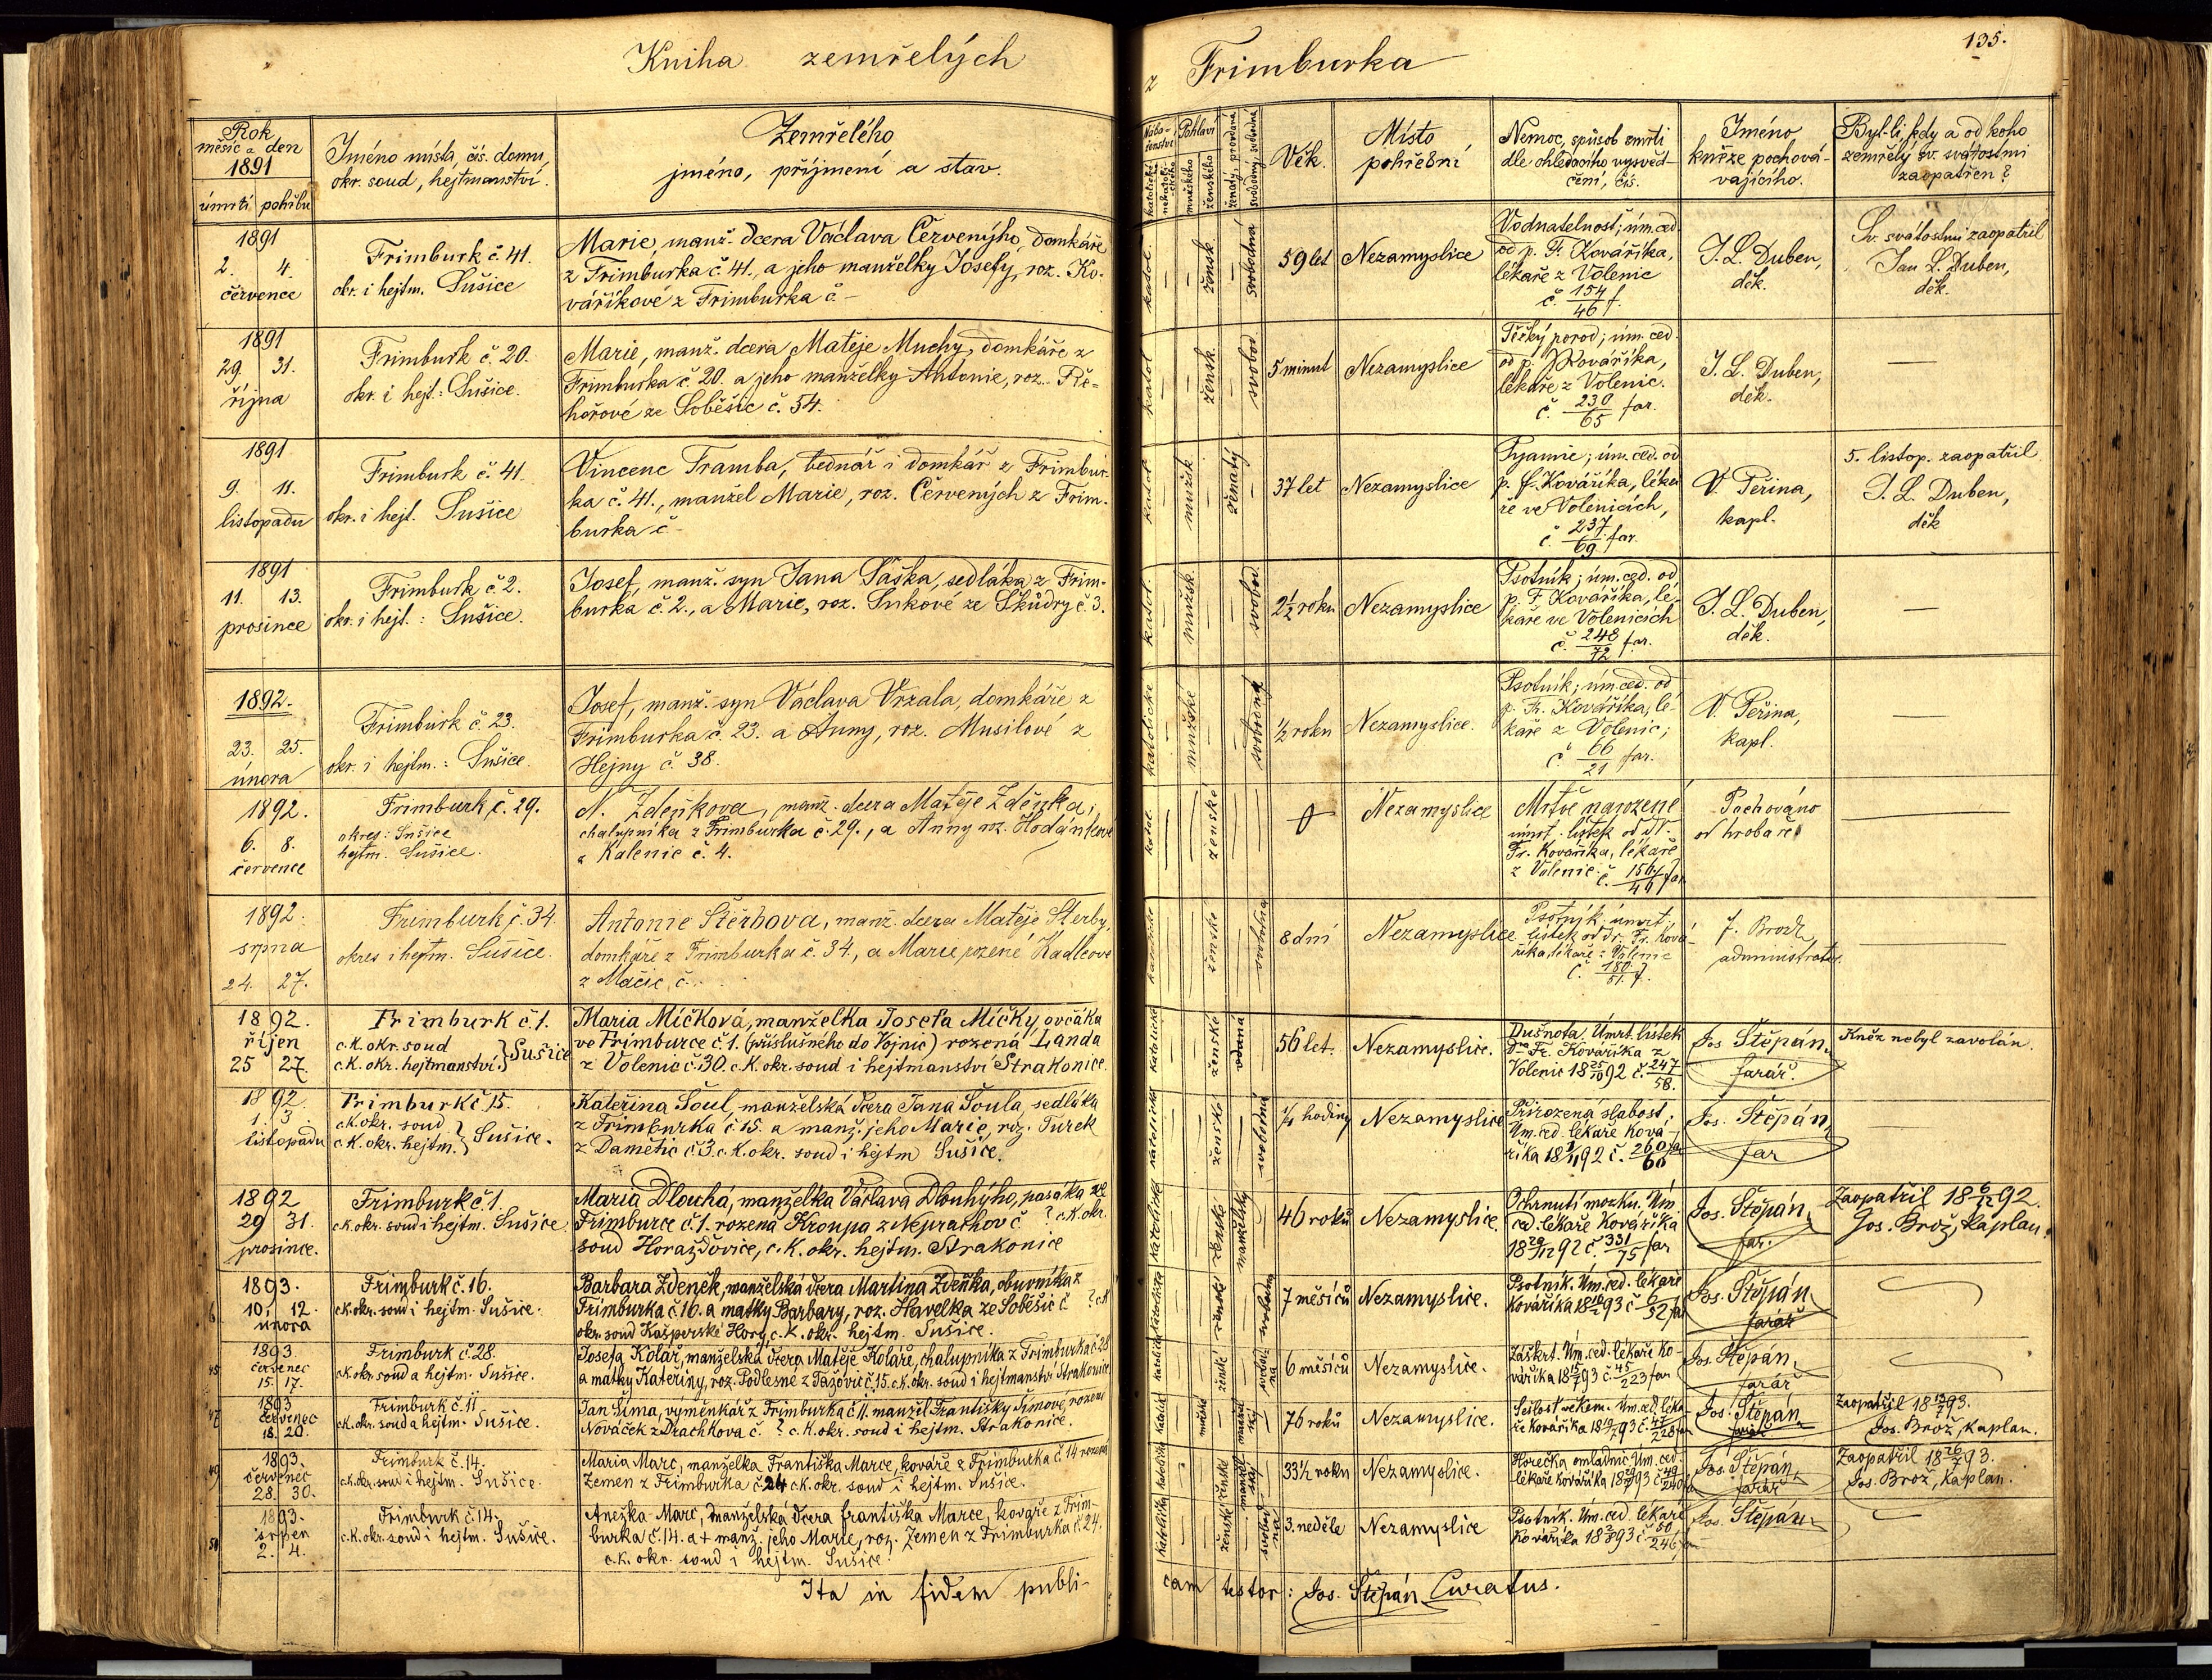 Kniha zemřelých
z Frimburka
135.
Rok
měsíc a den
1891
úmrtí pohřbu
Jméno místa, čís. domu,
okr. soud, hejtmanství.
Zemřelého
jméno, příjmení a stav.
Nábo-
ženství
katolické
Pohlaví
mužského
ženského
Věk.
Místo
pohřební
Nemoc, spůsob smrti
dle ohledacího vysvěd-
čení, čís.
Jméno
kněze pochová-
vajícího.
Byl-li, kdy a od koho
zemřelý sv. svátostmi
zaopatřen?
1891
2. 4.
července
Frimburk č. 41.
okr. i hejtm. Sušice
Marie, manž. dcera Václava Červenýho, domkáře
z Frimburka č. 41., a jeho manželky Josefy, roz. Ko-
váříkové z Frimburka č –
katol. — žensk. — svobodná
59 let
Nezamyslice
Vodnatelnost; úm. ced.
od p. F. Kovaříka,
lékaře z Volenic
č. 154/46 f.
J. L. Duben,
děk.
Sv. svátostmi zaopatřil
Jan L. Duben,
děk.
1891
29. 31.
října
Frimburk č. 20.
okr. i hejt.: Sušice.
Marie, manž. dcera Matěje Muchy, domkáře z
Frimburka č. 20. a jeho manželky Antonie, roz. Ře-
hořové ze Soběšic č. 54.
katol — žensk. — svobod.
5 minut
Nezamyslice
Těžký porod; úm. ced.
od p. Kovaříka,
lékaře z Volenic.
č. 230/65 far.
J. L. Duben,
děk.
—
1891
9. 11.
listopadu
Frimburk č. 41.
okr. i hejt. Sušice
Vincenc Tramba, bednář i domkář z Frimbur-
ka č. 41., manžel Marie, roz. Červených z Frim-
burka č –
katol — mužsk — ženatý
37 let
Nezamyslice
Pyamie; úm. ced. od
p. f. Kováříka, léka
ře ve Volenicích,
č. 237/69 far.
V. Peřina,
kapl.
5. listop. zaopatřil
J. L. Duben,
děk
1891
11. 13.
prosince
Frimburk č. 2.
okr. i hejt.: Sušice.
Josef, manž. syn Jana Paška, sedláka z Frim-
burka č. 2., a Marie, roz. Sukové ze Škůdry č. 3.
katol. — mužsk. — svobod.
2½ roku
Nezamyslice
Psotník; úm. ced. od
p. F. Kovaříka, lé-
kaře ve Volenicích
č. 248/72 far.
J. L. Duben,
děk.
—
1892.
23. 25.
února
Frimburk č. 23.
okr. i hejtm.: Sušice.
Josef, manž. syn Václava Vrzala, domkáře z
Frimburka č. 23. a Anny, roz. Musilové z
Hejny č. 38.
katolické — mužské — svobodný
½ roku
Nezamyslice.
Psotník; úm. ced. od
p. Fr. Kovaříka, lé-
kaře z Volenic;
č. 66/21 far.
V. Peřina,
kapl.
—
1892.
6. 8.
července
Frimburk č. 29.
okres: Sušice
hejtm. Sušice.
N. Zdeňkova, manž. dcera Matěje Zděnka,
chalupníka z Frimburka č. 29., a Anny roz.
z Kalenic č. 4.
katol. — ženské
Nezamyslice
Mrtvě narozené
úmrt. lístek od
Fr. Kovaříka, lékaře
z Volenic č.
Pochováno
od hrobaře
—
1892.
srpna
24. 27.
Frimburk č. 34.
okres i hejtm. Sušice.
Antonie Štěrbova, manž. dcera Matěje Sterby,
domkáře z Frimburka č. 34., a Marie rozené Kadlcove
z Mačic, č.
katolické — ženské — svobodna
8 dní
Nezamyslice
Psotník. úmrt.
lístek od Dr. Fr. Ková-
říka lékaře z Volenic
č. 180/51. f.
J. Brož
administrator.
—
1892.
říjen
25 27.
Frimburk č. 1.
c.k. okr. soud
c.k. okr. hejtmanství } Sušice
Maria Míčková, manželka Josefa Míčky ovčáka
ve Frimburce č. 1. (příslušného do Vojnic) rozená Landa
z Volenic č. 30. c.k. okr. soud i hejtmanství Strakonice.
katolická — ženské — vdaná
56 let.
Nezamyslice.
Dušnota. Úmrt. lístek
Dra Fr. Kovaříka z
Volenic 18 25/10 92 č. 247/58.
Jos Štěpán,
farář.
Kněz nebyl zavolán.
1892.
1. 3
listopadu
Frimburk č. 15.
c.k. okr. soud
c.k. okr. hejtm. } Sušice.
Kateřina Šoul, manželská dcera Jana Šoula, sedláka
z Frimburka č. 15. a manž. jeho Marie, roz. Turek
z Damětic č. 3. c.k. okr. soud i hejtm Sušice.
katolická — ženské — svobodná
¼ hodiny
Nezamyslice
Přirozená slabost.
Úm. ced. lékaře Ková-
říka 18 1/11 92 č. 260/60 far
Jos. Štěpán,
far
—
1892
29 31.
prosince.
Frimburk č. 1.
c.k. okr. soud i hejtm. Sušice
Maria Dlouhá, manželka Václava Dlouhýho, pasáka ve
Frimburce č. 1. rozená Kroupa z Neprachov č ? c.k. okr.
soud Horažďovice, c.k. okr. hejtm. Strakonice
katolické — ženské — manželky
46 roků
Nezamyslice.
Ochrnutí mozku. Úm.
ced. lékaře Kovaříka
18 29/12 92 č. 331/75 far
Jos. Štěpán,
far.
Zaopatřil 18 6/12 92.
Jos. Brož, kaplan.
6
1893.
10. 12.
února
Frimburk č. 16.
c.k. okr. soud i hejtm. Sušice.
Barbara Zdeněk, manželská dcera Martina Zdeňka, obuvníka z
Frimburka č. 16. a matky Barbary, roz. Havelka ze Soběšic č ? c.k
okr. soud Kašperské Hory, c.k. okr. hejtm. Sušice.
katolická — ženské — svobodna
7 měsíců
Nezamyslice.
Psotník. Úm. ced. lékaře
Kovaříka 18 10/2 93 č 6/52 far
Jos. Štěpán
farář
45
1893.
červenec
15. 17.
Frimburk č. 28.
c.k. okr. soud a hejtm. Sušice.
Josefa Kolář, manželská dcera Matěje Koláře, chalupníka z Frimburka č. 28
a matky Kateřiny, roz. Podlesné z Tažovic č. 15. c.k. okr. soud i hejtmanství Strakonice
katolická — ženské — svobod-
na
6 měsíců
Nezamyslice.
Záškrt. Úm. ced. lékaře Ko-
vaříka 18 15/7 93 č. 45/223 far
Jos. Štěpán,
farář
47
1893
červenec
18. 20.
Frimburk č. 11
c.k. okr. soud a hejtm. Sušice.
Jan Šíma, výměnkář z Frimburka č 11. manžel Františky Šímové, rozené
Nováček z Drachkova č. ? c.k. okr. soud i hejtm. Strakonice.
katolick — mužské
76 roků
Nezamyslice.
Sešlost věkem. Úm. ced. léka-
ře Kovaříka 18 19/7 93 č. 47/228 far
Jos. Štěpán,
farář
Zaopatřil 18 93.
Jos. Brož, kaplan.
49
1893.
červenec
28. 30.
Frimburk č. 14.
c.k. okr. soud i hejtm. Sušice.
Maria Marc, manželka Františka Marce, kováře z Frimburka č. 14 rozená
Zemen z Frimburka č. 24 c.k. okr. soud i hejtm. Sušice.
katolická — ženské
33½ roku
Nezamyslice.
Horečka omladnic Úm. ced.
lékaře Kovaříka 18 93 č 49/240 far
Jos. Štěpán,
farář
Zaopatřil 18 26/7 93.
Jos. Brož, kaplan.
50
1893.
srpen
2. 4.
Frimburk č. 14.
c.k. okr. soud i hejtm. Sušice.
Anežka Marc, manželská dcera Františka Marce, kovaře z Frim-
burka č. 14. a + manž. jeho Marie, roz. Zemen z Frimburka č. 24.
c.k. okr. soud i hejtm. Sušice.
katolická — ženské — svobod-
ná
3. neděle
Nezamyslice
Psotník. Úm. ced. lékaře
Kovaříka 18 2/8 93 č 50/246 far
Jos. Štěpán
Ita in fidem publi-
cam testor: Jos. Štěpán Curatus.